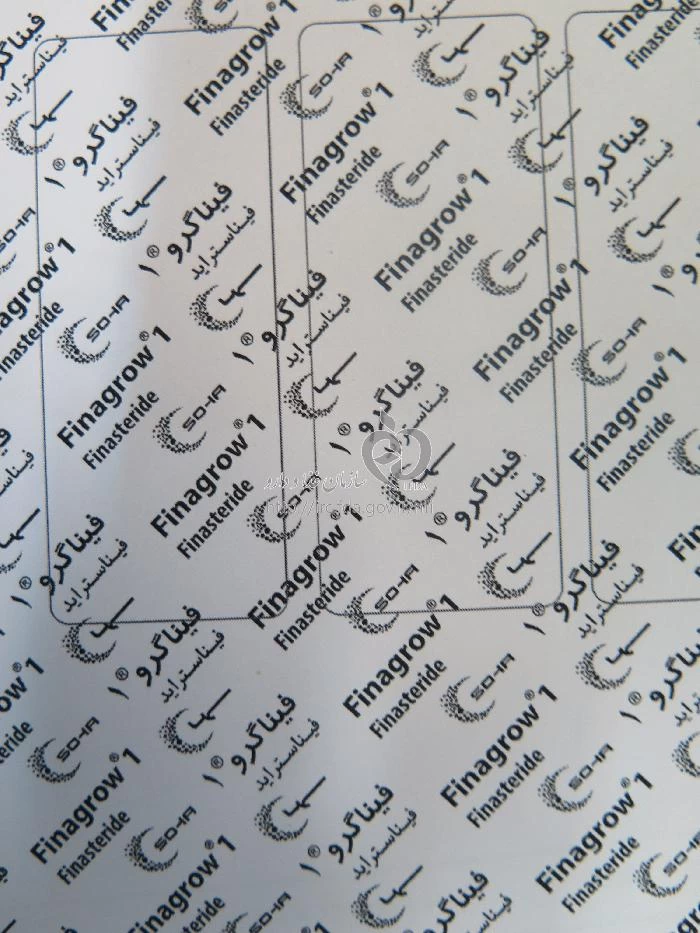 Finagrow® 1
Finasteride
SO-HA
فیناگرو® ۱
فیناستراید
سها
Finagrow® 1
Finasteride
SO-HA
فیناگرو® ۱
فیناستراید
سها
Finagrow® 1
Finasteride
SO-HA
فیناگرو® ۱
فیناستراید
سها
Finagrow® 1
Finasteride
SO-HA
فیناگرو® ۱
فیناستراید
سها
Finagrow® 1
Finasteride
SO-HA
فیناگرو® ۱
فیناستراید
سها
سازمان غذا و دارو
Finagrow® 1
Finasteride
SO-HA
فیناگرو® ۱
فیناستراید
سها
Finagrow® 1
Finasteride
SO-HA
فیناگرو® ۱
فیناستراید
سها
Finagrow® 1
Finasteride
SO-HA
فیناگرو® ۱
فیناستراید
سها
Finagrow® 1
Finasteride
SO-HA
فیناگرو® ۱
فیناستراید
سها
Finagrow® 1
Finasteride
SO-HA